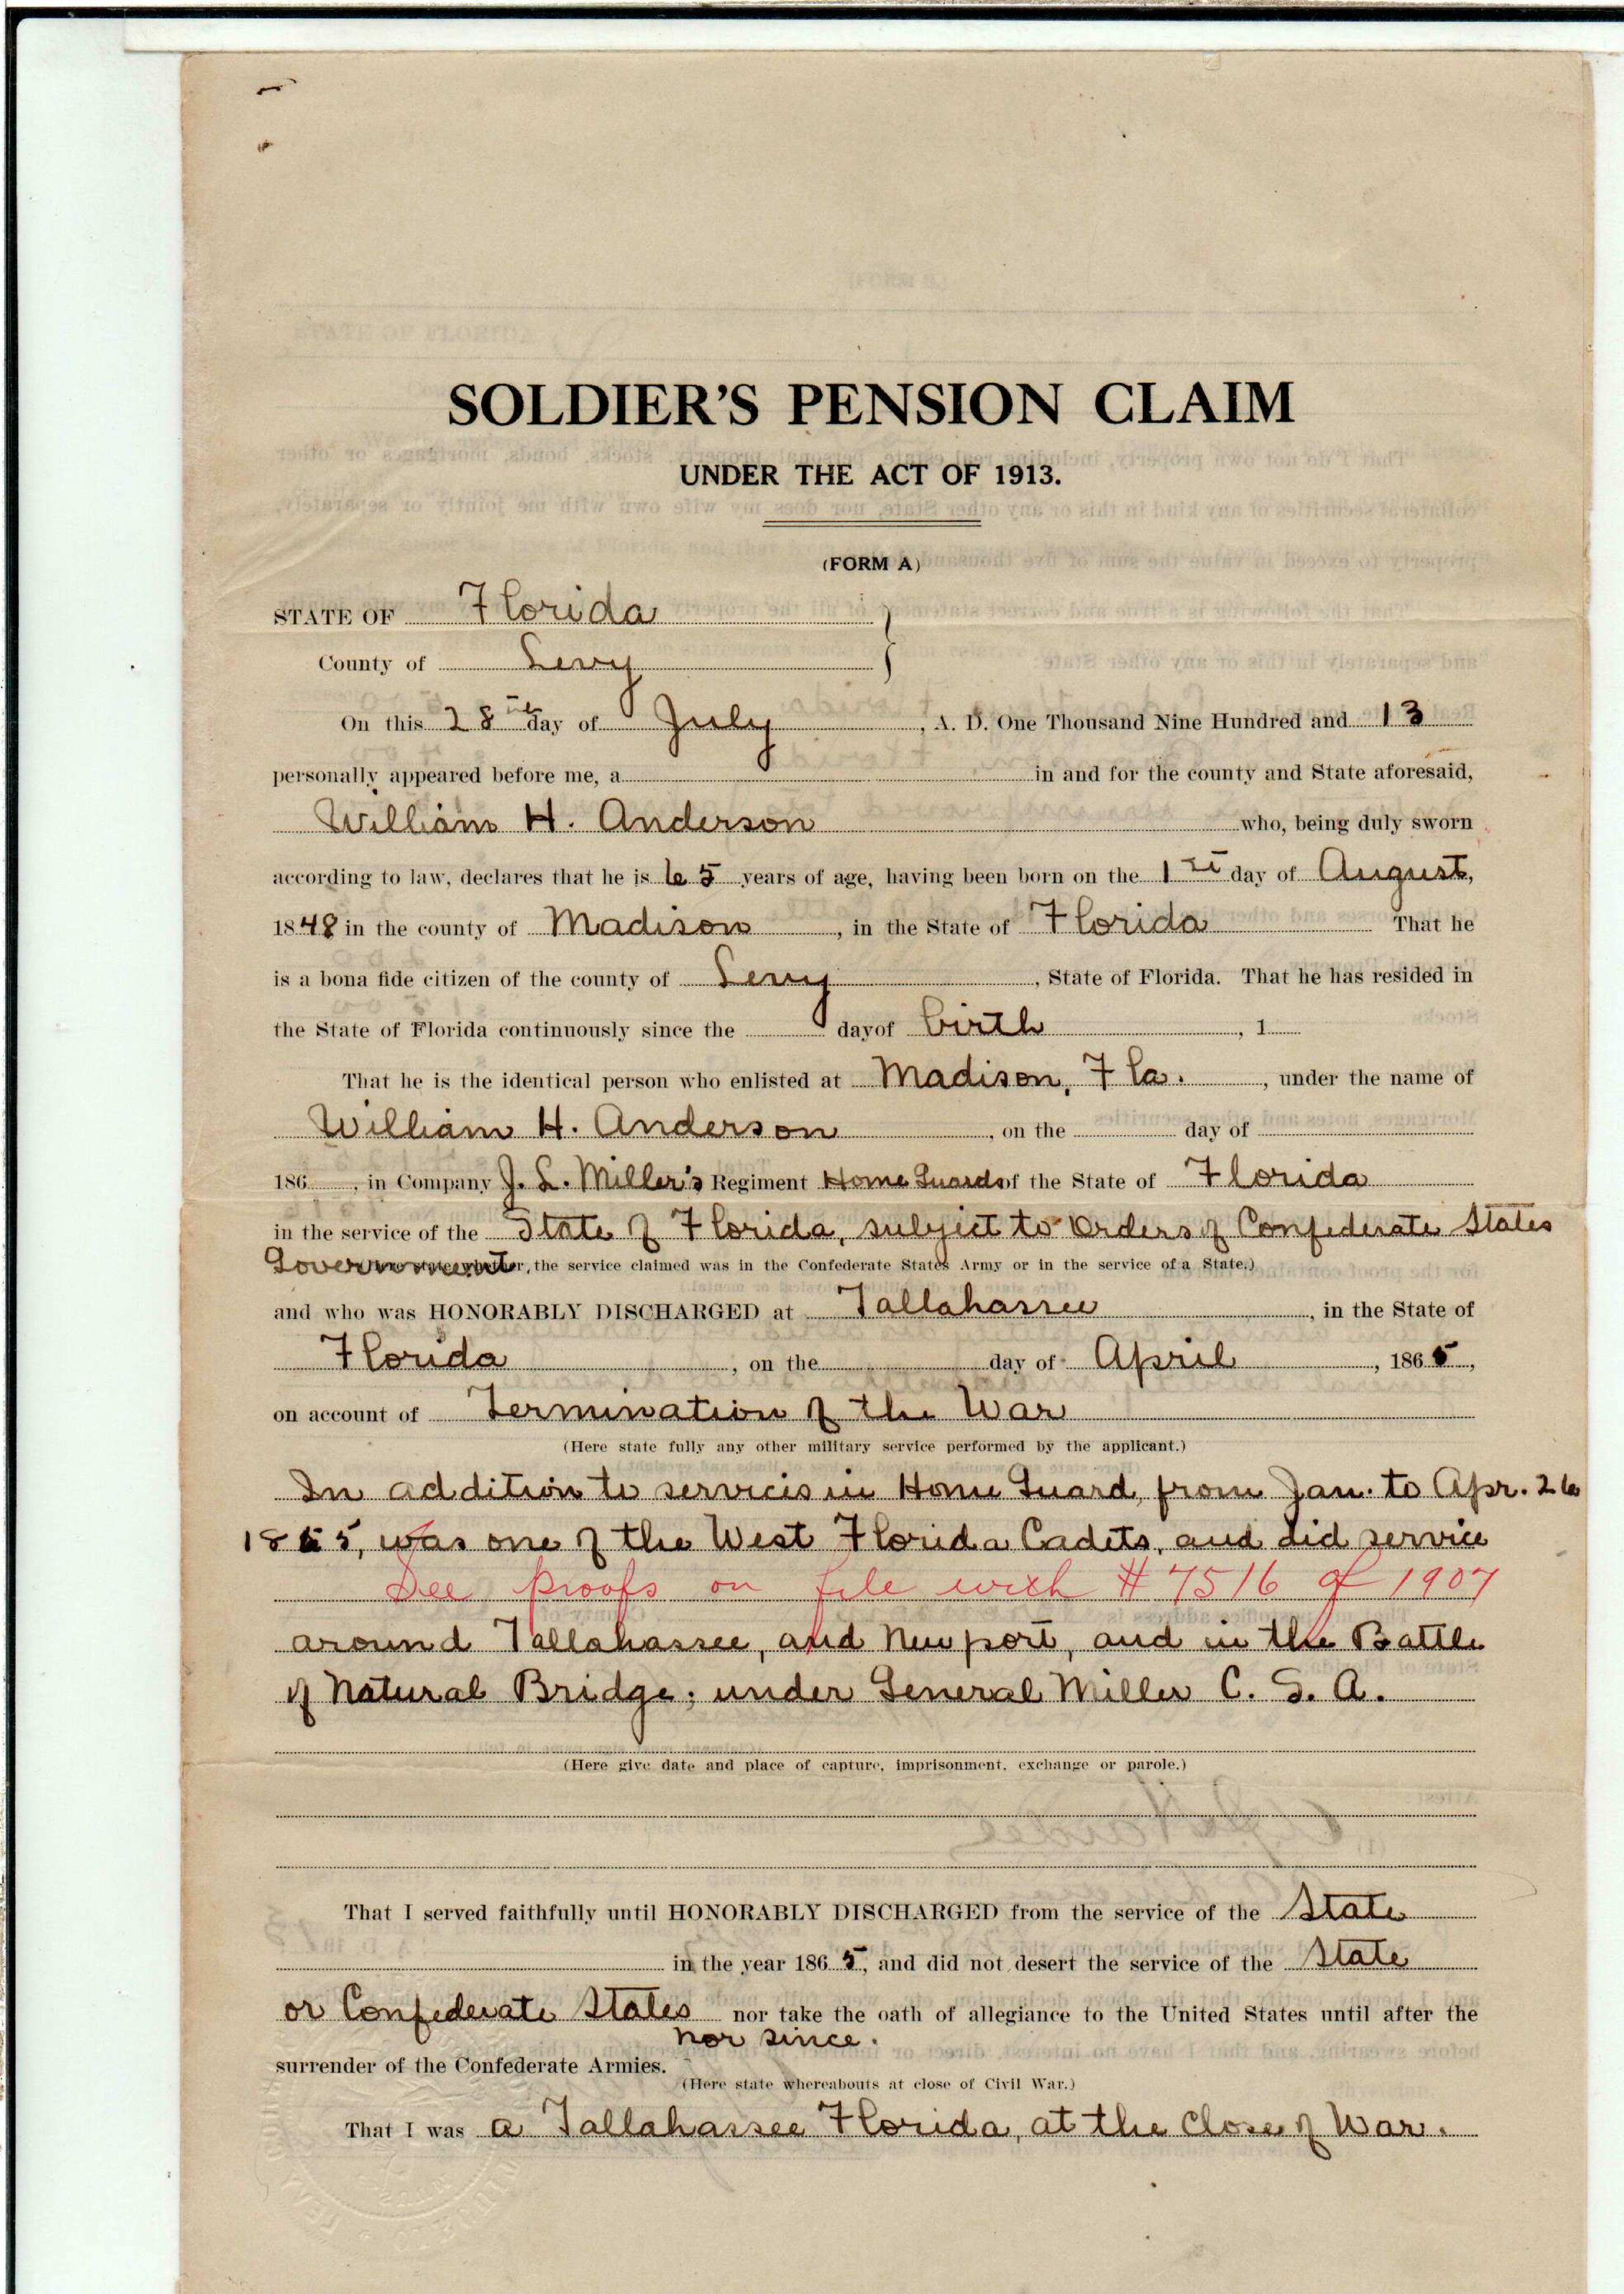 SOLDIER'S PENSION CLAIM
UNDER THE ACT OF 1913.
(FORM A)
STATE OF Florida
County of Levy
On this 28th day of July, A. D. One Thousand Nine Hundred and 13
personally appeared before me, a in and for the county and State aforesaid,
William H. Anderson who, being duly sworn
according to law, declares that he is 65 years of age, having been born on the 1st day of August,
1848 in the county of Madison, in the State of Florida That he
is a bona fide citizen of the county of Levy, State of Florida. That he has resided in
the State of Florida continuously since the day of birth, 1
That he is the identical person who enlisted at Madison, Fla., under the name of
William H. Anderson, on the day of
186, in Company J. L. Miller's Regiment Home Guards of the State of Florida
in the service of the State of Florida, subject to Orders of Confederate States
Government, the service claimed was in the Confederate States Army or in the service of a State.)
and who was HONORABLY DISCHARGED at Tallahassee, in the State of
Florida, on the day of April, 1865,
on account of Termination of the War
(Here state fully any other military service performed by the applicant.)
In addition to services in Home Guard, from Jan. to Apr. 26
1865, was one of the West Florida Cadets, and did service
See proofs on file with # 7516 of 1907
around Tallahassee, and Newport, and in the Battle
of Natural Bridge; under General Miller C. S. A.
(Here give date and place of capture, imprisonment, exchange or parole.)
That I served faithfully until HONORABLY DISCHARGED from the service of the State
in the year 1865, and did not desert the service of the State
or Confederate States nor take the oath of allegiance to the United States until after the
nor since.
surrender of the Confederate Armies.
(Here state whereabouts at close of Civil War.)
That I was a Tallahassee Florida, at the Close of War.